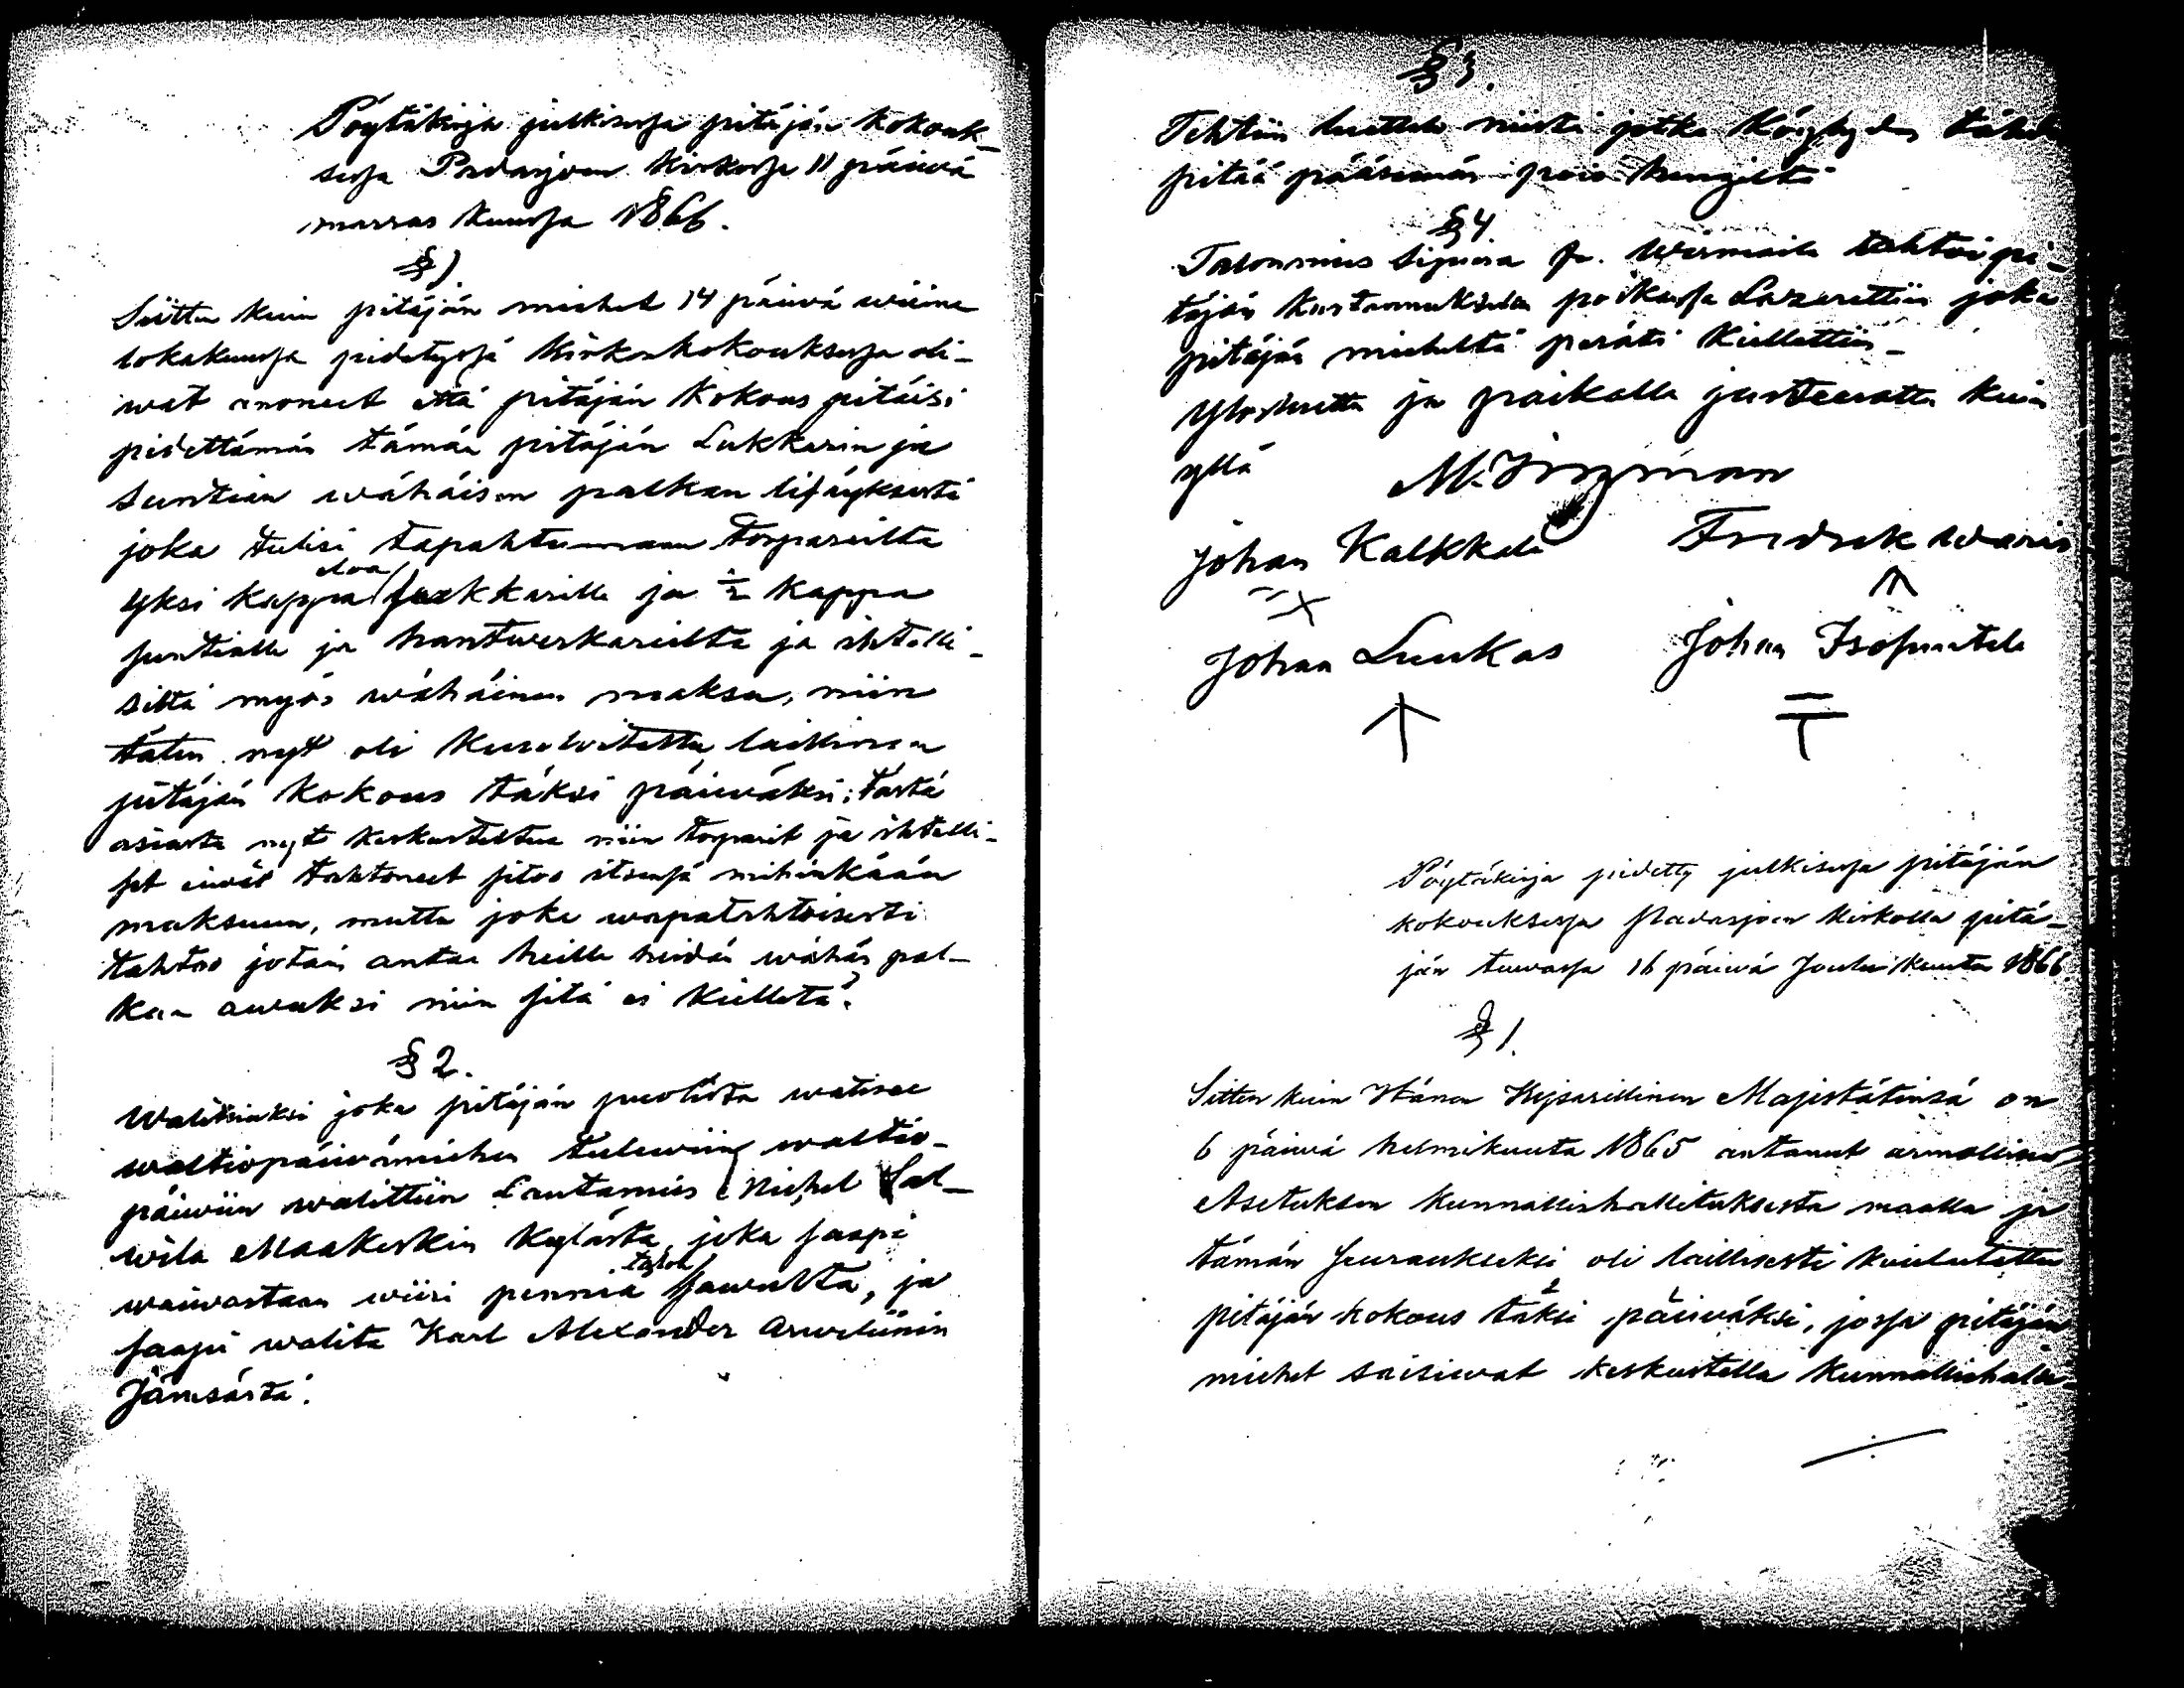 Pöytäkirja julkisessa pitäjän kokouk-
sessa Padasjoen kirkossa 11 päivä
marras kuussa 1866.
§ 1
Siitten kuin pitäjän miehet 14 päivä wiime
lokakuussa pidetyssä kirkonkokouksessa oli-
wat anoneet että pitäjän kokous pitäisi
pidettämän tämän pitäjän Lukkarin ja
Suntian wähäisen palkan lisäyksestä
joka tulisi tapahtumaan torpareilta
yksi kappa eloa lukkarille ja ½ kappa
suntialle ja hantwerkareilta ja ihtelli-
siltä myös wähäinen maksu, niin
täten nyt oli kuulutettu laillinen
pitäjän kokous täksi päiwäksi; tästä
asiasta nyt keskusteltua niin torparit ja ihtelli-
set eiwät tahtoneet sitoa itsensä mihinkään
maksuun, mutta joka wapatahtoisesti
tahtoo jotain antaa heille heidän wähän pal-
kan awuksi niin sitä ei kielletä.
§ 2.
Walitsiaksi joka pitäjän puolesta walitsee
waltiopäiwämiehen tulewiin waltio-
päiwiin walittiin Lautamies Michel Sal-
wila Maakesken kylästä, joka saapi
waiwastaan wiisi penniä talon sawulta, ja
saapi walita Karl Alexander Arweliinin
Jämsästä.
§ 3.
Tehtiin luettelo niistä jotka köyhyyden tähden
pitää pääsemän pois hengiltä
§ 4.
Talonmies Sipura fr. Wirmaila tahtoi pi-
täjän kustannuksella poikansa Lazarettiin joka
pitäjän miehiltä peräti kiellettiin_
Ylösluettu ja paikalla justeerattu kuin
yllä
Johan Kalkkela Fredrek Waris
Johan Luukas Johan Isosuntela
Pöytäkirja pidetty julkisessa pitäjän
kokouksessa Padasjoen kirkolla pitä-
jän tuwassa 16 päiwä Joulu kuuta 1866.
§ 1.
Sitten kuin Hänen Kejsarillinen Majestätinsä on
6 päiwä helmikuuta 1865 antanut armollisen
Asetuksen kunnallishallituksesta maalla ja
tämän seuraukseksi oli laillisesti kuulutettu
pitäjän kokous täksi päiwäksi, jossa pitäjän
miehet saisiwat keskustella kunnallishalli-